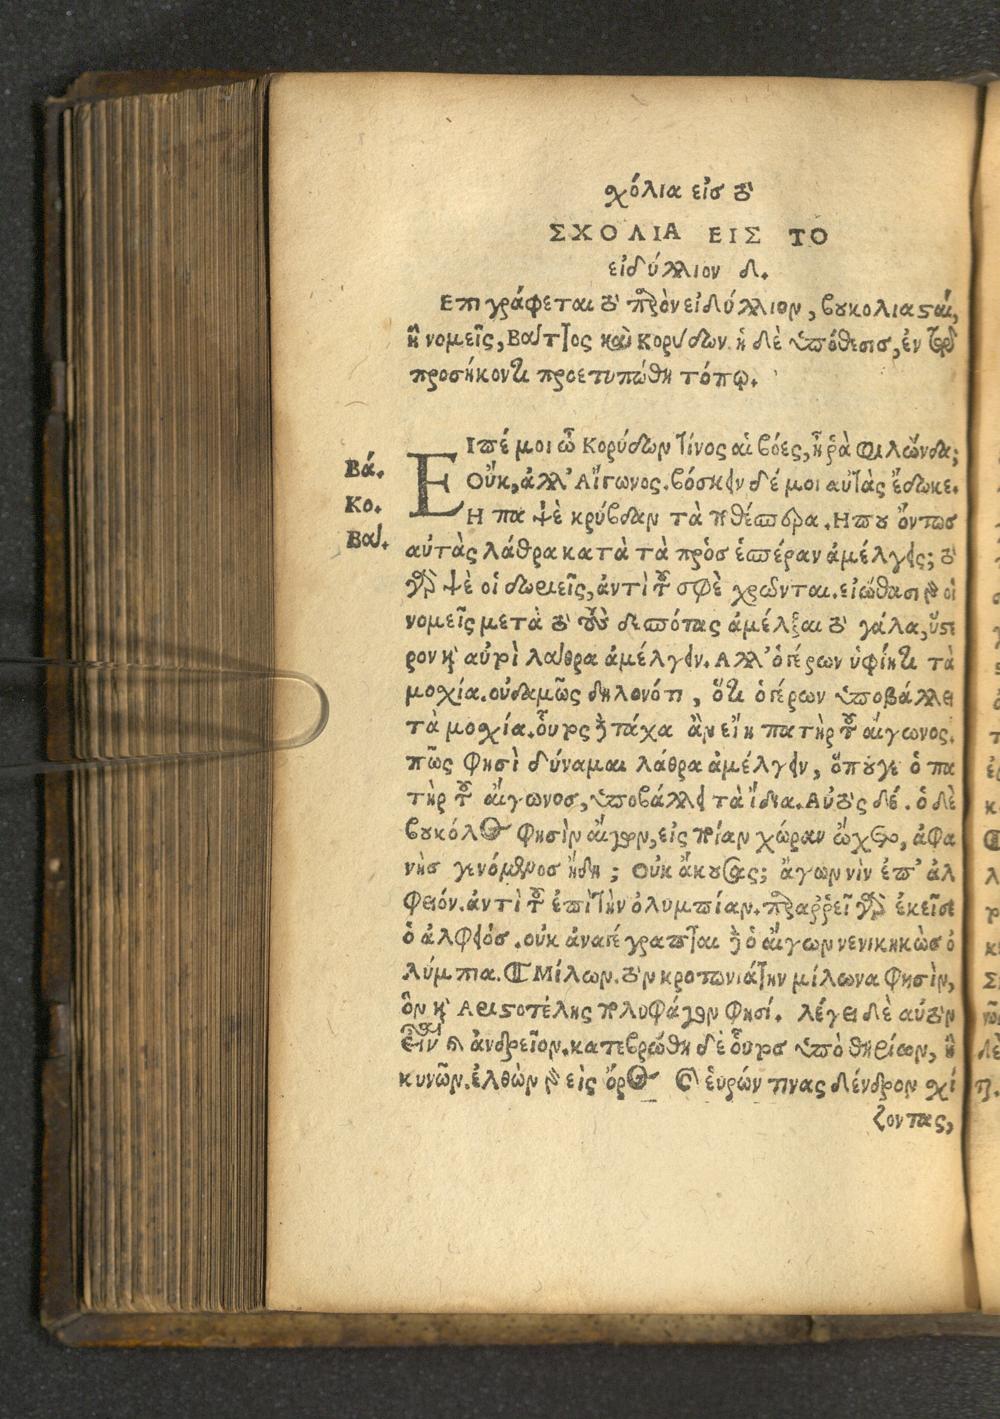 σχόλια εἰσ τὸ
ΣΧΟΛΙΑ ΕΙΣ ΤΟ
εἰδύλλιον δ.
Επιγράφεται τὸ παρὸν εἰδύλλιον, βουκολιασταί,
ἢ νομεῖς, Βάττος καὶ Κορύδων. ἡ δὲ ὑπόθεσισ, ἐν τῷ
προσήκοντι προετυπώθη τόπῳ.
Βά.
ΕΙπέ μοι ὦ Κορύδων τίνος αἱ βόες, ἦ ῥὰ Φιλώνδα;
Κο.
Οὔκ, ἀλλ' Αἴγωνος. βόσκεν δέ μοι αὐτὰς ἔδωκε.
Βάτ.
Η πα ψὲ κρύβδαν τὰ ποθέσπερα. Ηπου ὄντωσ
αὐτὰς λάθρα κατὰ τὰ πρὸσ ἑσπέραν ἀμέλγεις; τὸ
γὰρ ψὲ οἱ δωριεῖς, ἀντὶ τοῦ σφὲ χρῶνται. εἰώθασι γὰρ οἱ
νομεῖς μετὰ τὸ τοὺς δεσπότας ἀμέλξαι τὸ γάλα, ὕστε
ρον καὶ αὐτοὶ λάθρα ἀμέλγειν. Αλλ' ὁ γέρων ὑφίητι τὰ
μοχία. οὐδαμῶς δηλονότι, ὅτι ὁ γέρων ὑποβάλλει
τὰ μοχία. οὗτος δὲ τάχα ἂν εἴη πατὴρ τοῦ αἴγωνος.
πῶς φησὶ δύναμαι λάθρα ἀμέλγειν, ὅπουγε ὁ πα
τὴρ τοῦ αἴγωνοσ, ὑποβάλλει τὰ ἴδια. Αὐτὸς δέ. ὁ δὲ
βουκόλος φησὶν αἴγων, εἰς τίναν χώραν ᾤχετο, ἀφα
νὴσ γενόμενοσ ἤδη; Οὐκ ἄκουσας; ἄγων νὶν ἐπ' ἀλ
φειόν. ἀντὶ τοῦ ἐπὶ τὴν ὀλυμπίαν. παραῤῥεῖ γὰρ ἐκεῖσε
ὁ ἀλφειόσ. οὐκ ἀναγέγραπται δὲ ὁ αἴγων νενικηκὼσ ὀ
λύμπια. ¶ Μίλων. τὸν κροτωνιάτην μίλωνα φησὶν,
ὃν καὶ Αριστοτέλης πολυφάγον φησί. λέγει δὲ αὐτὸν
ἀνδρεῖον. κατεβρώθη δὲ οὗτοσ ὑπὸ θηρίων, ἢ
κυνῶν. ἐλθὼν γὰρ εἰς ὄρος καὶ εὑρών τινας δένδρον χί
ζοντας,